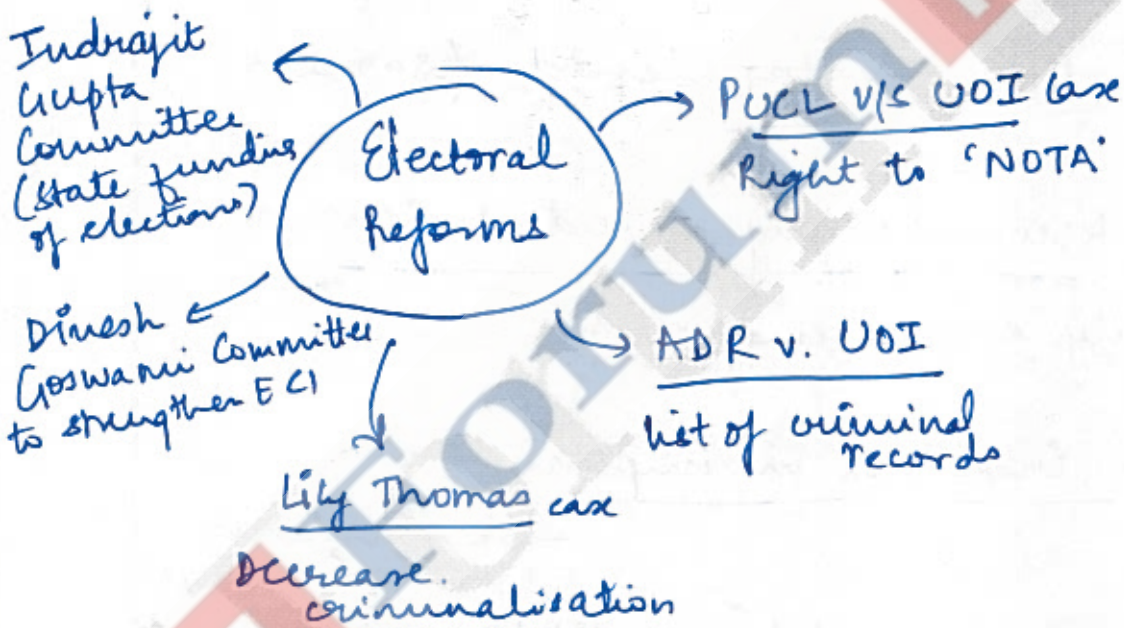 Electoral
Reforms
Indrajit
Gupta
Committee
(state funding
of elections)
PUCL v/s UOI Case
Right to 'NOTA'
Dinesh
Goswami Committee
to strengthen ECI
ADR v. UOI
list of criminal
records
Lily Thomas case
Decrease
criminalisation
Forum